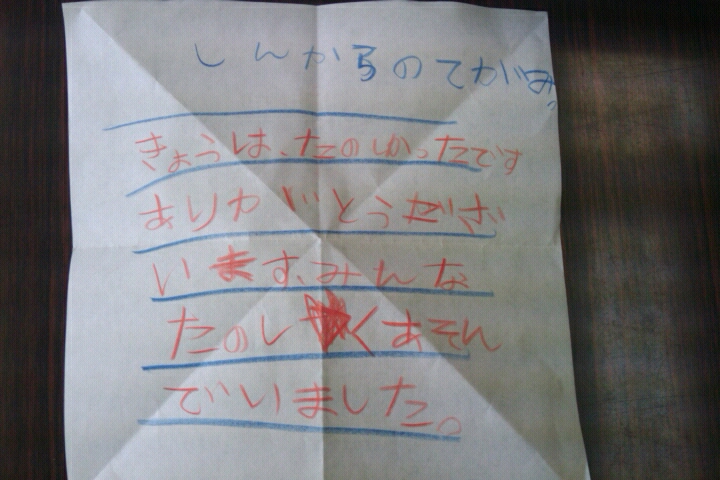 しんからのてがみ。
きょうは、たのしかったです
ありがどうござ
います、みんな
たのしくあそん
でいました。